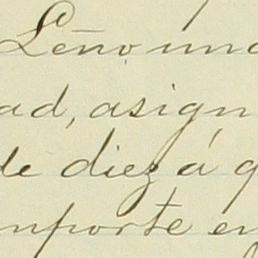 Leño, un
ad, asign
de diez á q
mporte en